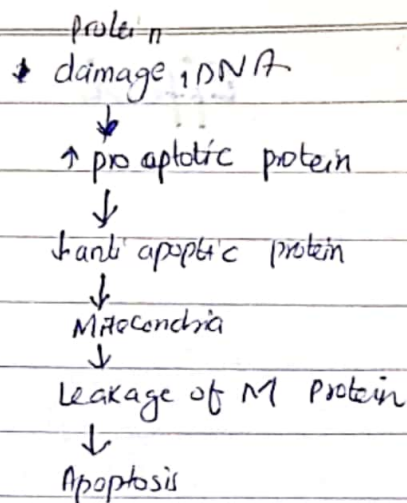 protein
↓ damage, DNA
↓
↑ pro aptotic protein
↓
↓ anti apoptic protein
↓
Mitocondria
↓
Leakage of M Protein
↓
Apoptosis